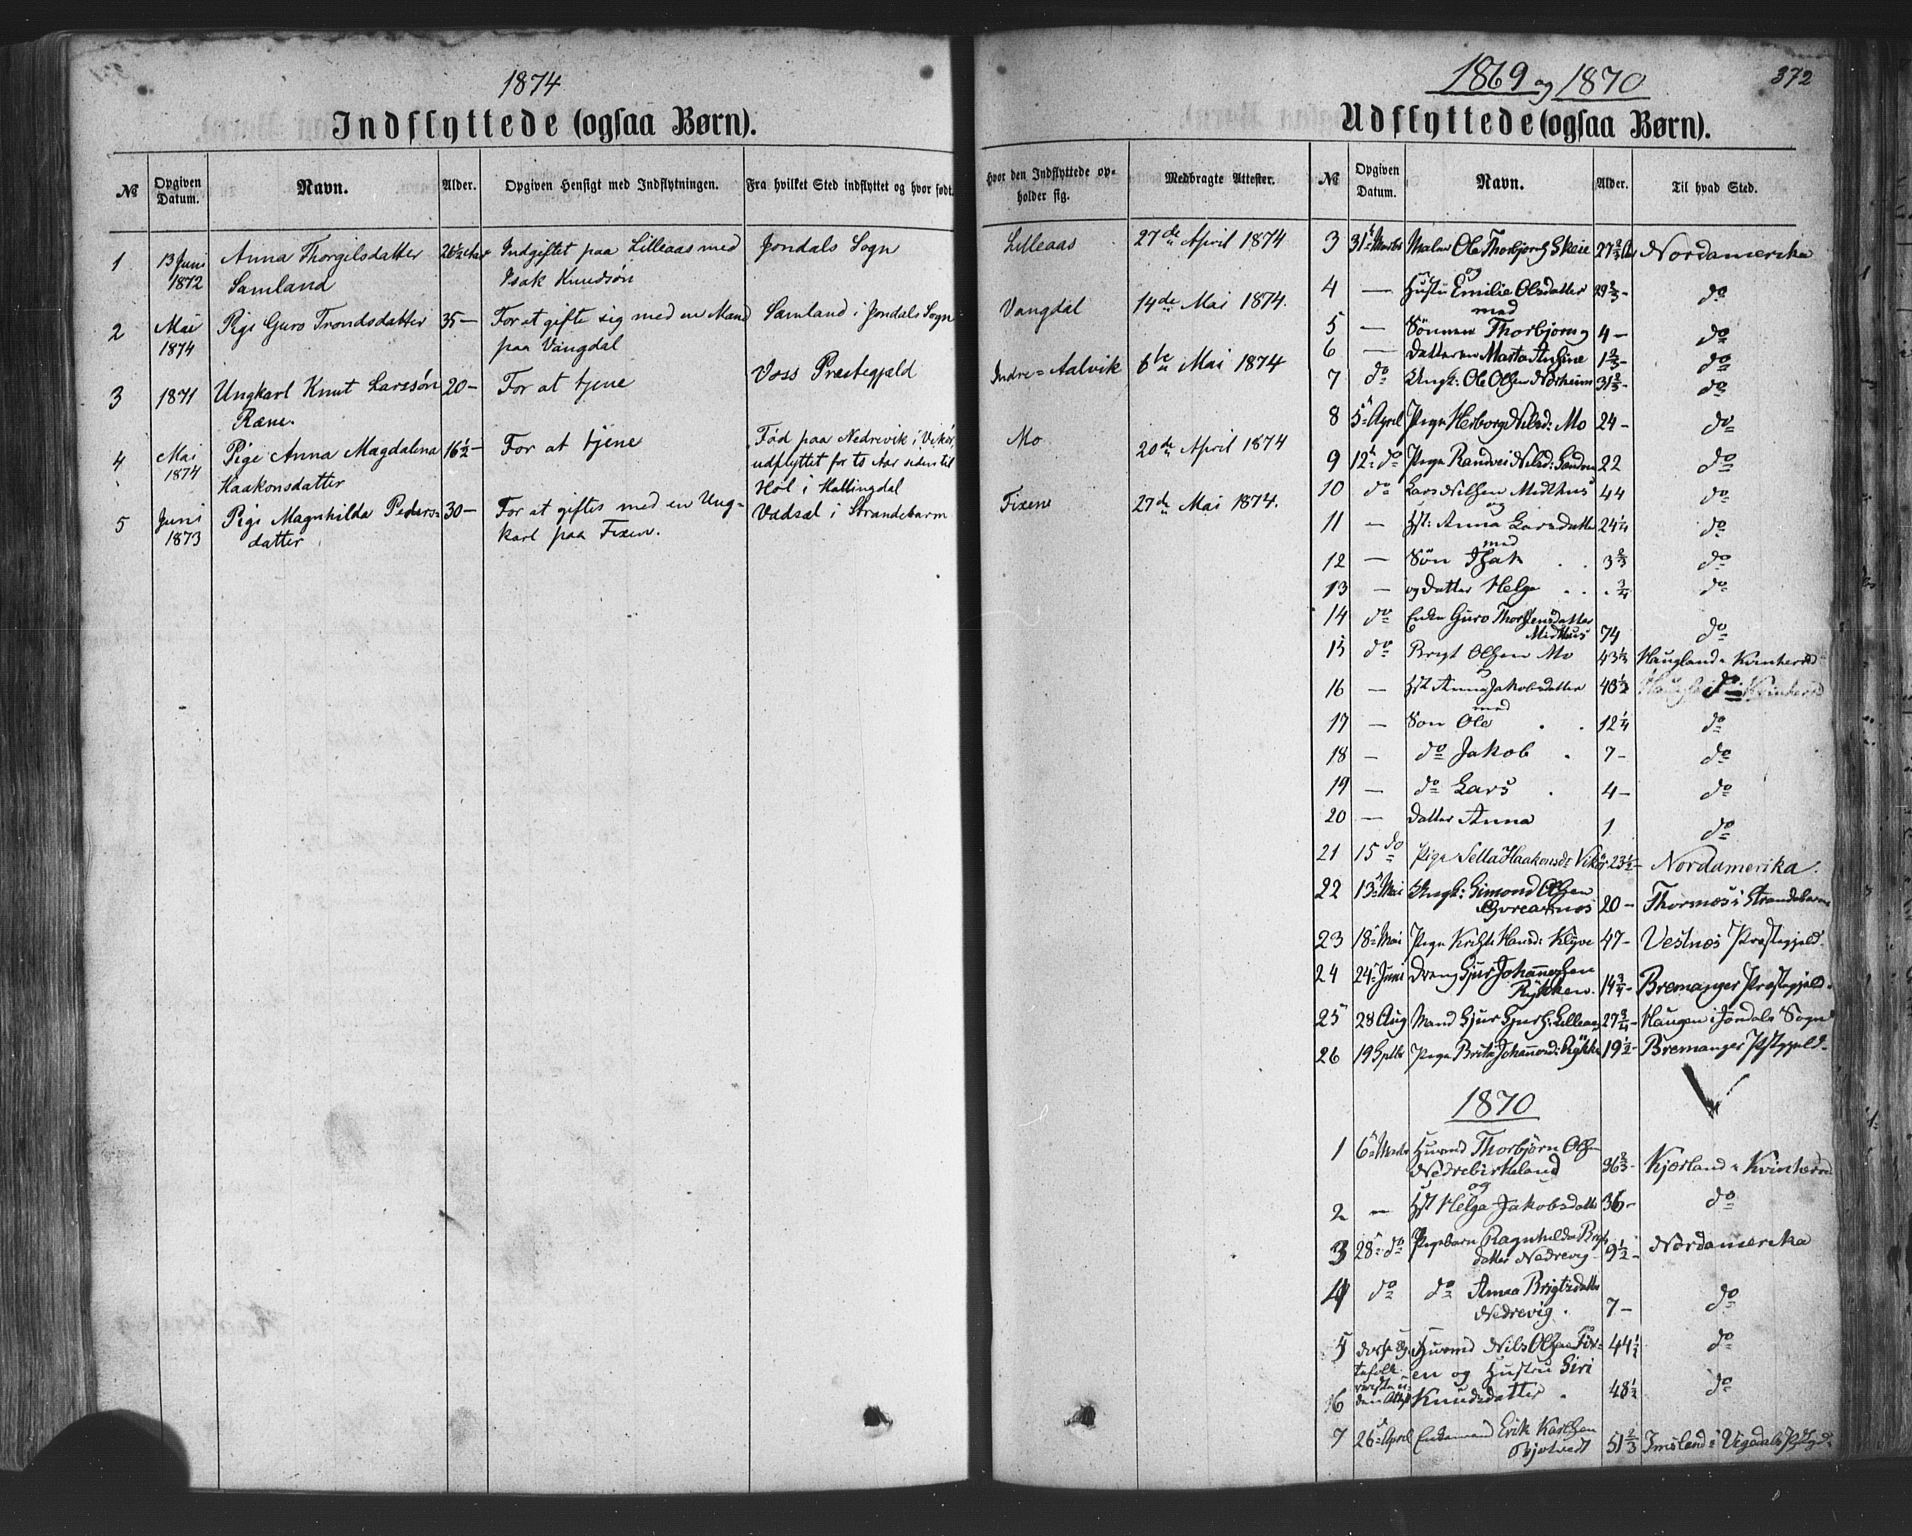 1874
Indflyttede (ogsaa Børn).
№ Opgiven Datum. Navn. Alder. Opgiven Hensigt med Indflytningen. Fra hvilket Sted indflyttet og hvor født.
Hvor den Indflyttede opholder sig. Medbragte Attester.
1 13 Juni 1872 Anna Thorgilsdatter Samland 26½ Aar Indgiftet paa Lilleaas med Isak Knudsøn Jondals Sogn Lilleaas 27de April 1874
2 Mai 1874 Pige Guro Trondsdatter 35 — For at gifte sig med en Mand paa Vangdal Samland i Jondals Sogn Vangdal 14de Mai 1874.
3 1871 Ungkarl Knut Larssøn Ræne. 20 — For at tjene Voss Præstegjeld Indre=Aalvik 6te Mai 1874
4 Mai 1874 Pige Anna Magdalena Haakonsdatter 16½ — For at tjene Fød paa Nedrevik i Vikør, udflyttet for to Aar siden til Hol i Hallingdal Mo 20de April 1874
5 Juni 1873 Pige Magnhilda Pedersdatter 30 — For at giftes med en Ungkarl paa Fixen. Vadsæl i Strandebarm Fixene 27de Mai 1874.
1869 og 1870
372
Udflyttede (ogsaa Børn).
№ Opgiven Datum. Navn. Alder. Til hvad Sted.
3 31 Marts Maler Ole Thorbjørns Skeie 27⅔ Aar Nordamerika
og
4 — Hustru Emilie Olsdatter 29⅔ - do
med
5 — Sønnen Thorbjørn 4 — do
6 — Datteren Marta 1⅔ - do
7 do Ungk: Ole Olsen Norheim 31⅔ - do
8 5 April Pige Herborg Nilsd: Mo 24 - do
9 12 do Pige Randvei Nilsd: 22 do
10 do Lars Nilsen Midthus 44 do
og
11 — Hst: Anna Larsdatter 24¼ do
med
12 — Søn Isak 3⅔ do
13 — og Datter Helga ¾ do
14 do Enke Guro Thorsteinsdatter Midthus 74 do
15 do Brigt Olsen Mo 43⅓ Haugland i Kvinherred
16 — Hst Anna Jakobsdatter 40½ do
med
17 — Søn Ole 12¼ do
18 — do Jakob 7 - do
19 — do Lars 4 — do
20 — Datter Anna 1 do
21 15 do Pige Sella Haakonsd: Vikør 23½ - Nordamerika.
22 13 Mai Ungk: Simond Olsen 20 — Thormøs i Strandebarm
23 18 Mai Pige Kristi Hansd: Klyve 47 - Vestnæs Præstegjeld.
24 24 Juni Dreng Sjur Johannessen Rykken. 14¾ - Bremanger Præstegjeld.
25 28 Aug Mand Sjur Sjurs: Lilleaas 27¾ - Haugen i Jondals Sogn
26 19 Sptbr Pige Brita Johannesd: Rykke 19½ - Bremanger Pstgjeld.
1870
1 6 Marts Huusmd Thorbjørn Olsen Nedrebirkeland 36⅔ - Kjærland i Kvinherred
og
2 — Hst Helga Jakobsdatter 36 - do
3 28 do Pigebarn Ragnhilda Brigtsdatter Nedrevig 9½ - Nordamerika
4 do do Anna Brigtsdatter Nedrevig. 7 — do
5 Huusmd Nils Olsen Fixen og Hustru Siri 44½ do
6 Knudsdatter 48½ do
7 26 April Enkemand Erik Karlsen 51⅔ Imsland i Vigedals Pstgjd.